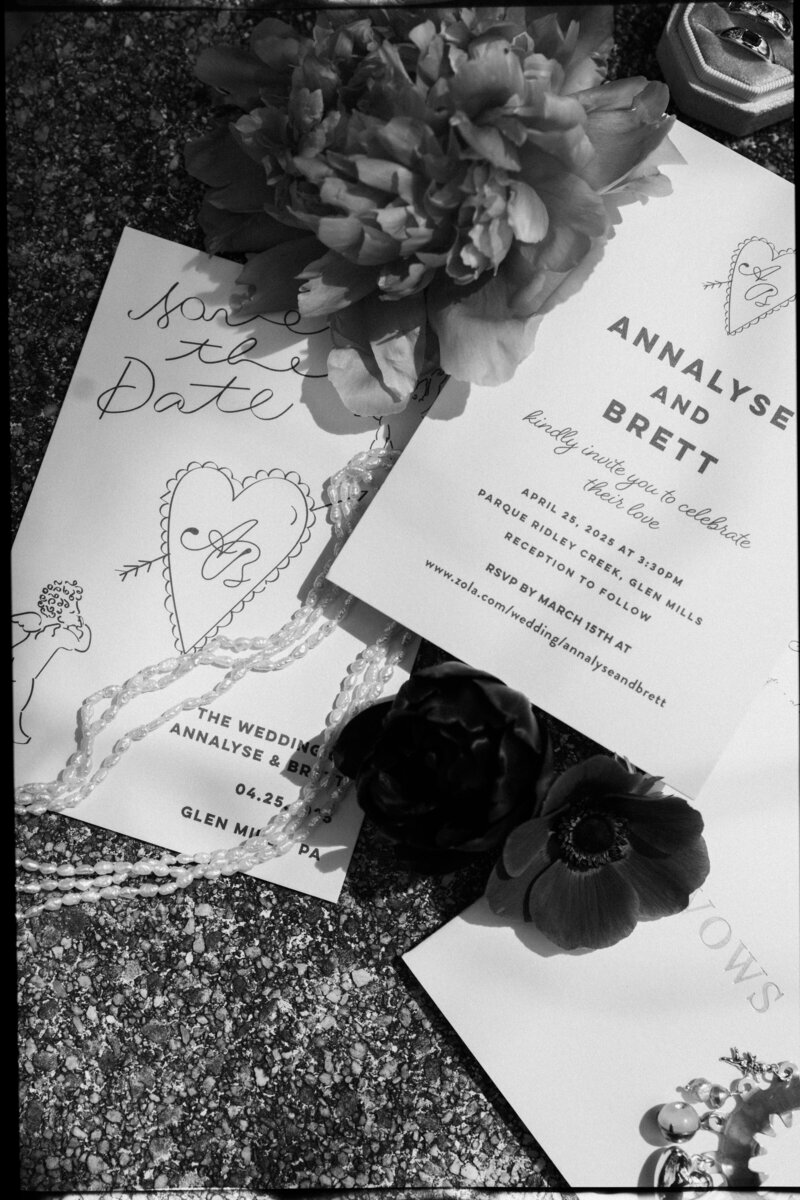 Save
the
Date
AB
THE WEDDING
ANNALYSE &
04.25.
GLEN MILLS PA
AB
ANNALYSE
AND
BRETT
kindly invite you to celebrate
their love
APRIL 25, 2025 AT 3:30PM
PARQUE RIDLEY CREEK, GLEN MILLS
RECEPTION TO FOLLOW
RSVP BY MARCH 15TH AT
www.zola.com/wedding/annalyseandbrett
VOWS